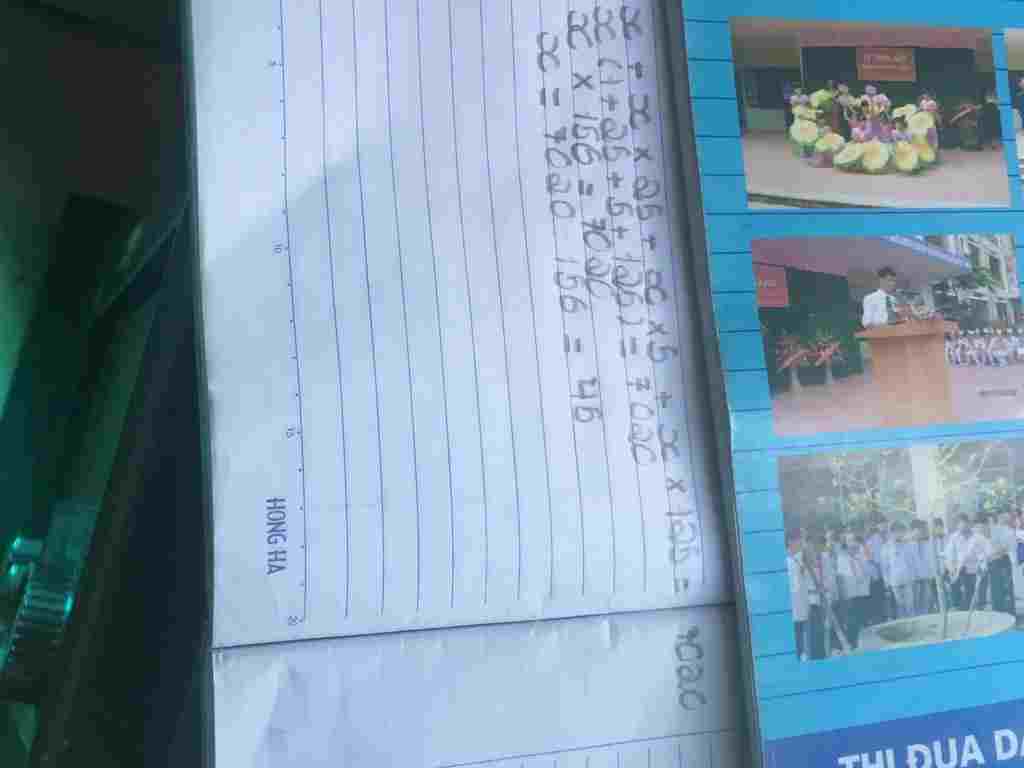 x + x × 25 + x × 5 + x × 125 = 7020
x (1 + 25 + 5 + 125) = 7020
x × 156 = 7020
x = 7020 156 = 45
5 10 15
HONG HA
THI ĐUA